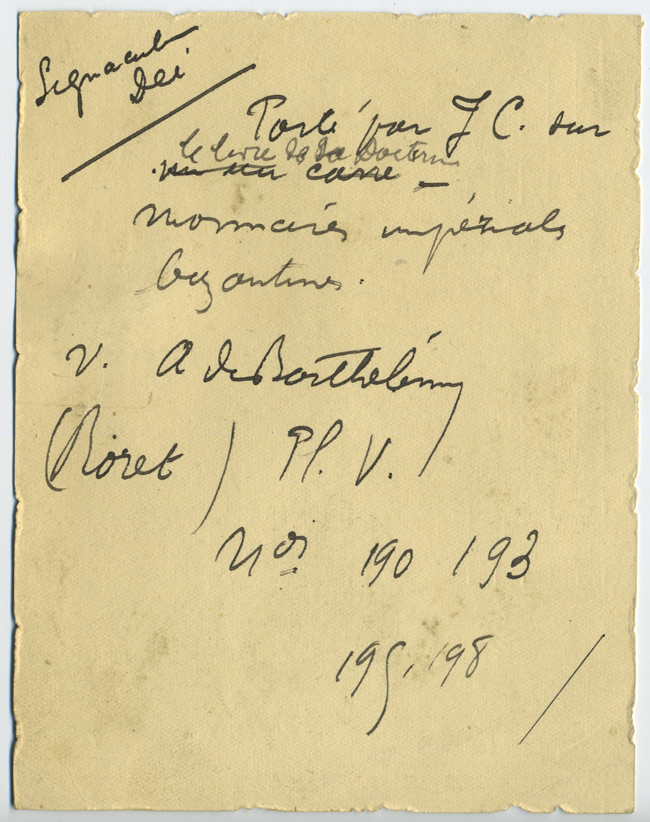 Signacul
Dei
Porté par J C. sur
le livre de sa Doctrine
carré —
monnaies impériales
byzantines.
V. A de Barthélémy
(Roret) Pl. V.
Nos 190 193
195, 198